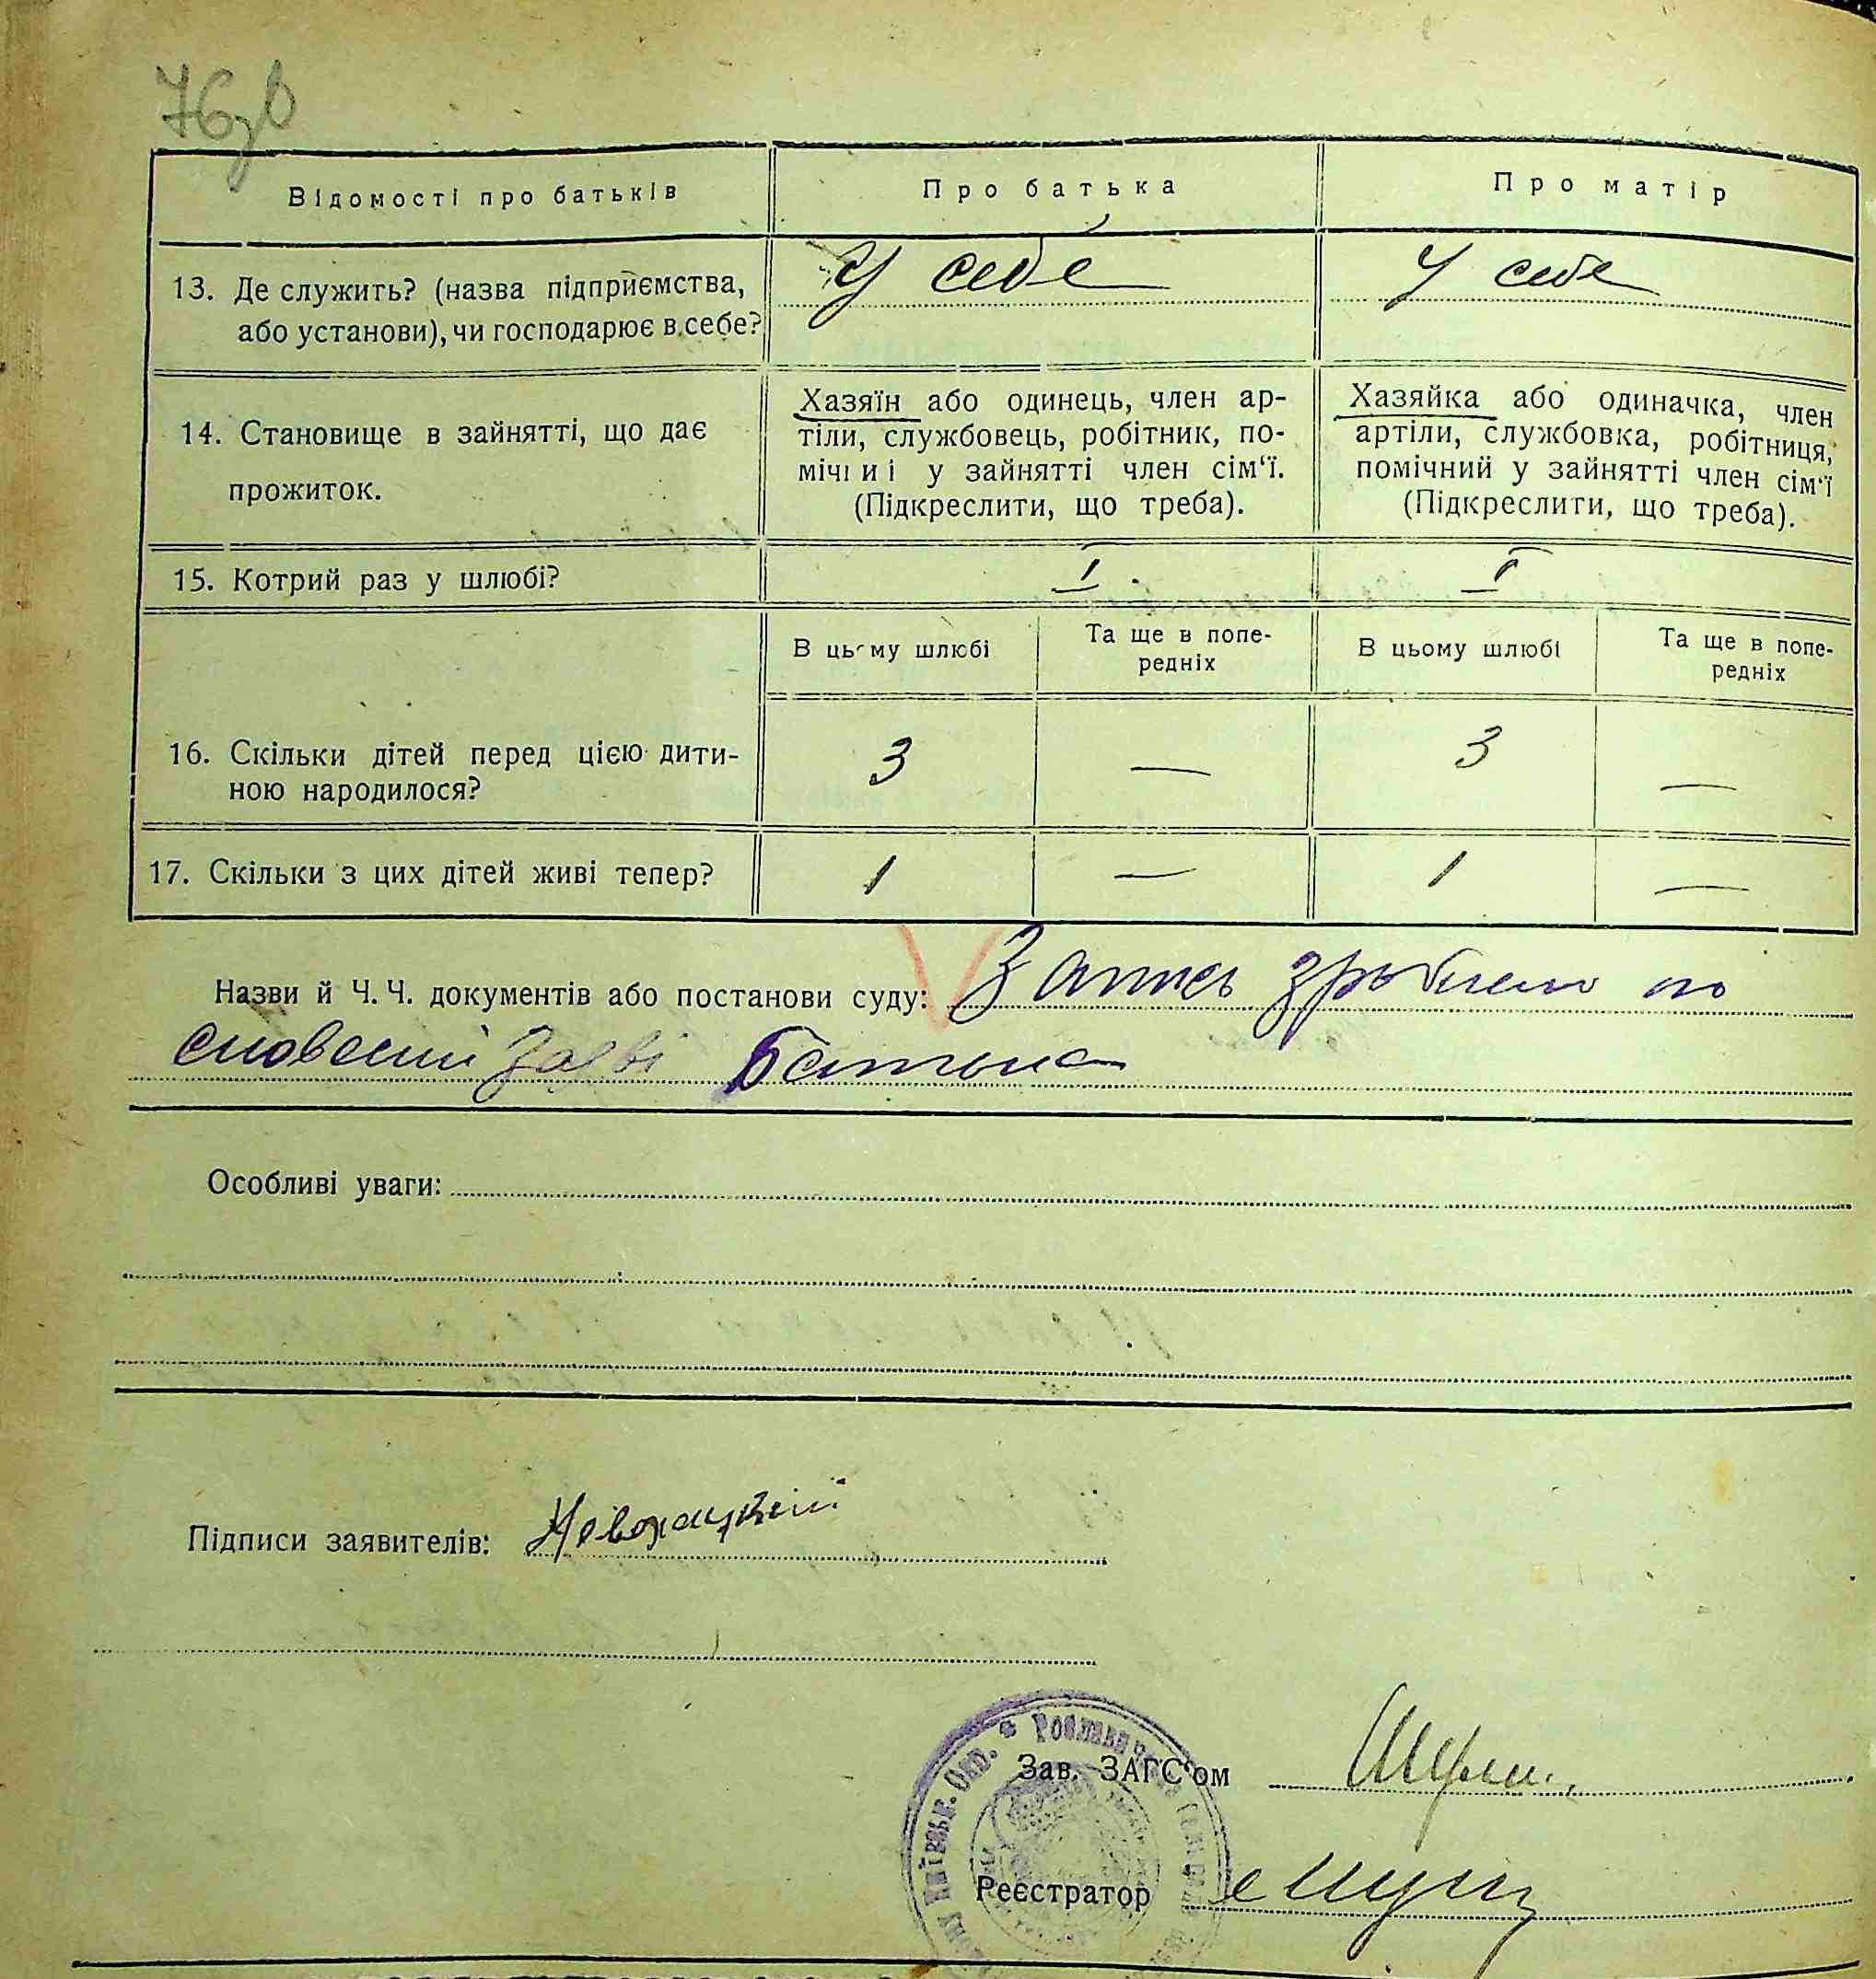 76зв
Відомості про батьків
Про батька
Про матір
13. Де служить? (назва підприємства,
або установи), чи господарює в себе?
У себе
У себе
14. Становище в зайнятті, що дає
прожиток.
Хазяїн або одинець, член ар-
тіли, службовець, робітник, по-
мічний у зайнятті член сім'ї.
(Підкреслити, що треба).
Хазяйка або одиначка, член
артіли, службовка, робітниця,
помічний у зайнятті член сім'ї
(Підкреслити, що треба).
15. Котрий раз у шлюбі?
I
I
В цьому шлюбі
Та ще в попе-
редніх
В цьому шлюбі
Та ще в попе-
редніх
16. Скільки дітей перед цією дити-
ною народилося?
3
—
3
—
17. Скільки з цих дітей живі тепер?
1
—
1
—
Назви й Ч. Ч. документів або постанови суду: Запись зроблено по
словесній заяві Батька
Особливі уваги:
Підписи заявителів:
Зав. ЗАГС'ом
Реєстратор
Київськ. Окр. *